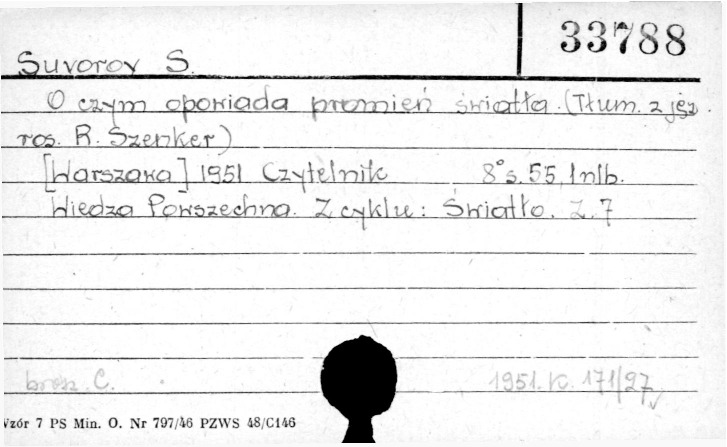 33788
Suvorov S.
O czym opowiada promień światła. (Tłum. z jęz.
ros. R. Szenker)
[Warszawa] 1951 Czytelnik 8° s. 55, 1 nlb.
Wiedza Powszechna. Z cyklu: Światło. Z. 7
brosz. C. 1951. K. 171/27
Wzór 7 PS Min. O. Nr 797/46 PZWS 48/C146